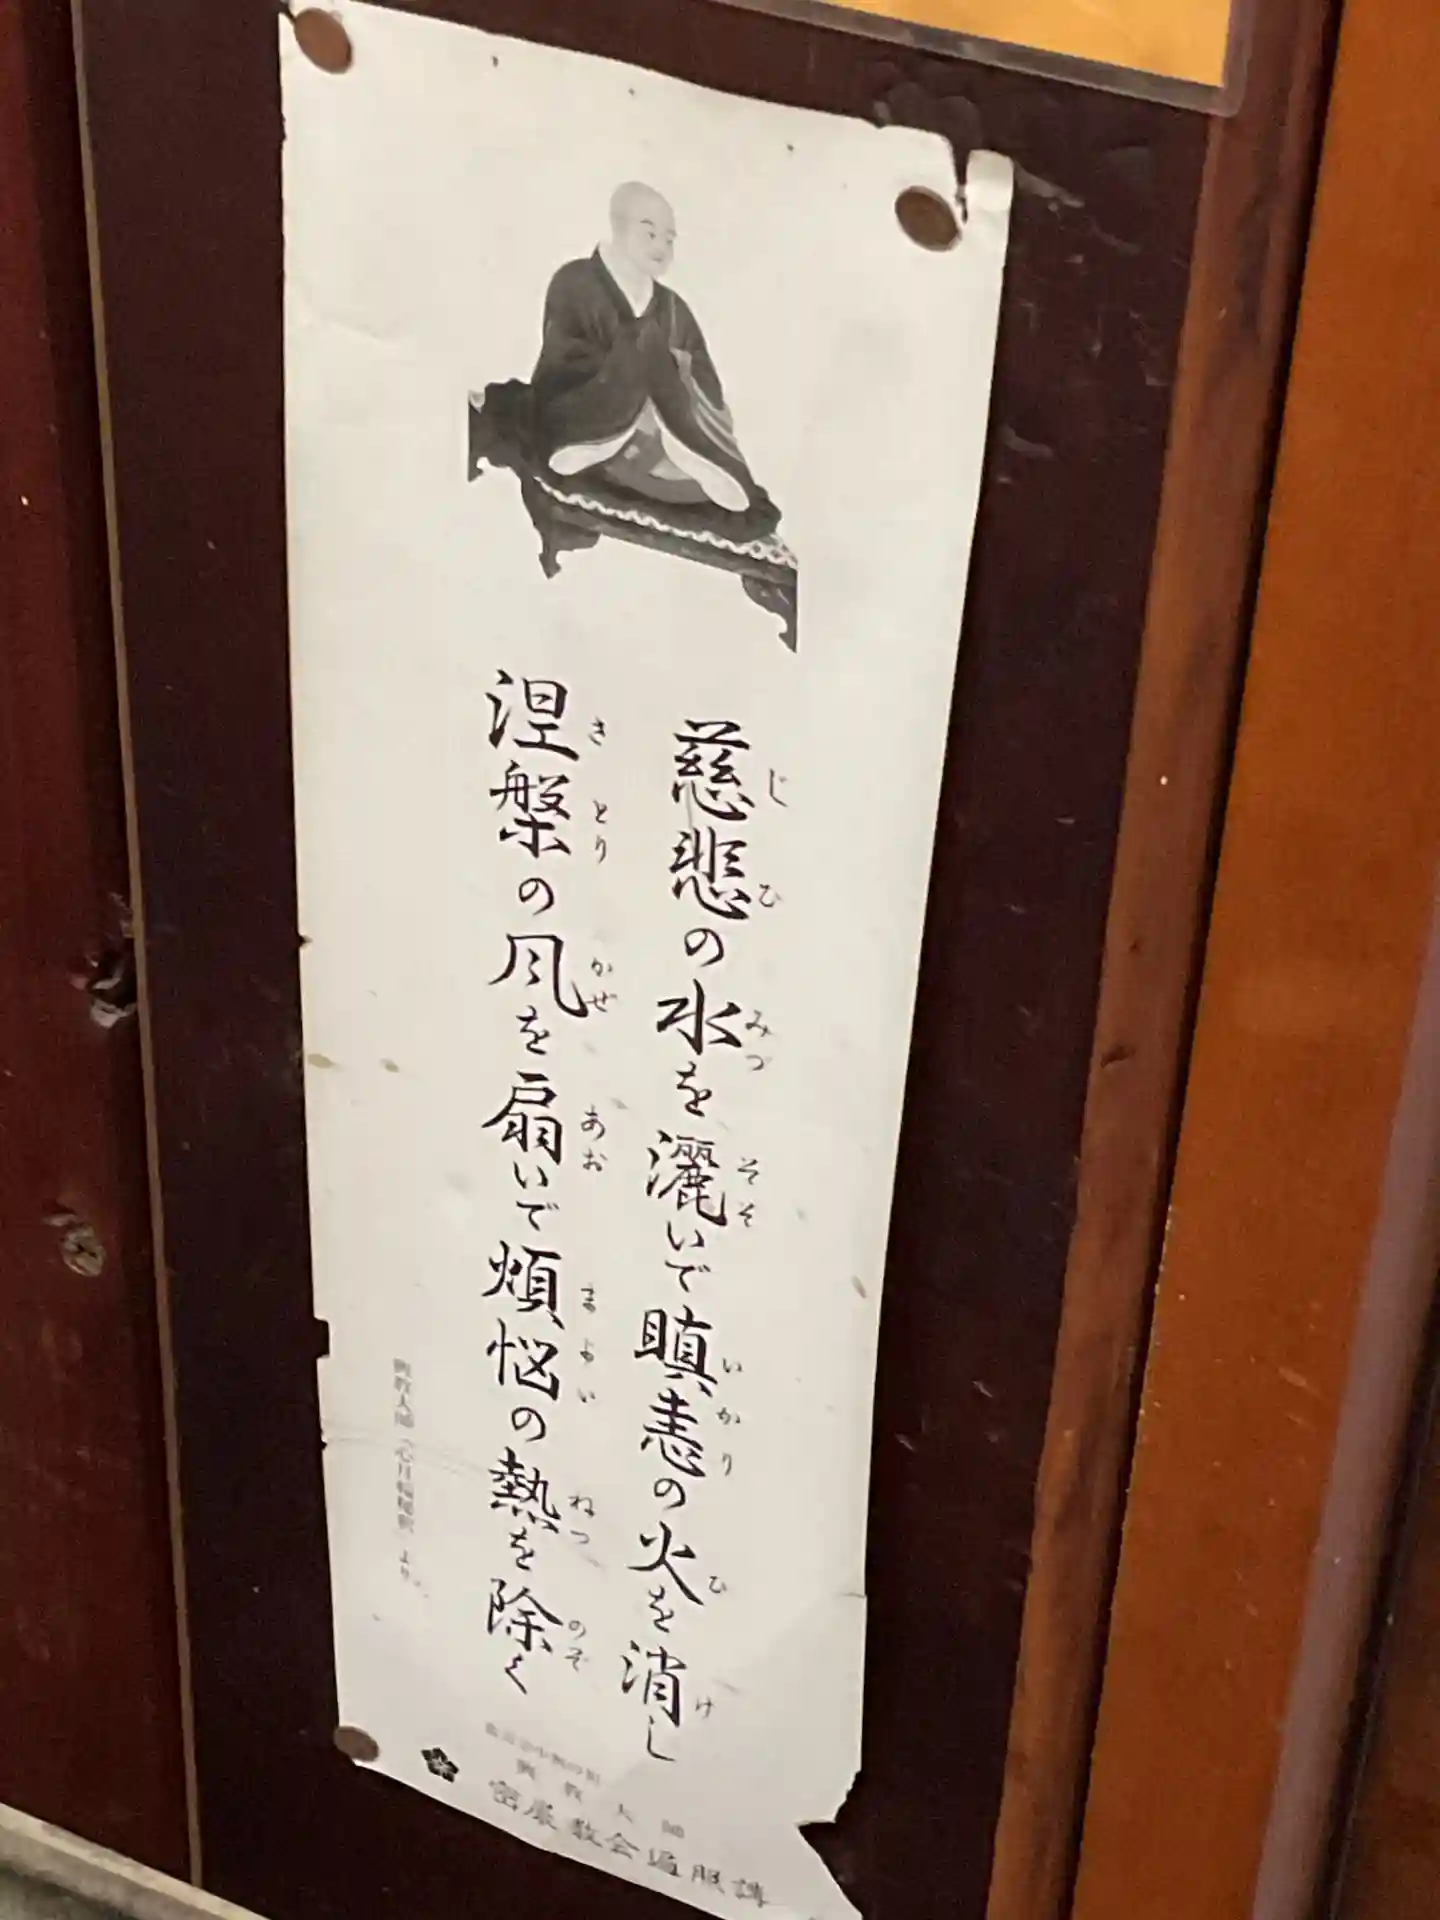 慈悲の水を灑いで瞋恚の火を消し
じひ みづ そそ いかり ひ け
涅槃の風を扇いで煩悩の熱を除く
さとり かぜ あお まよい ねつ のぞ
興教大師「心月輪秘釈」より
興教大師
密厳教会遍照講